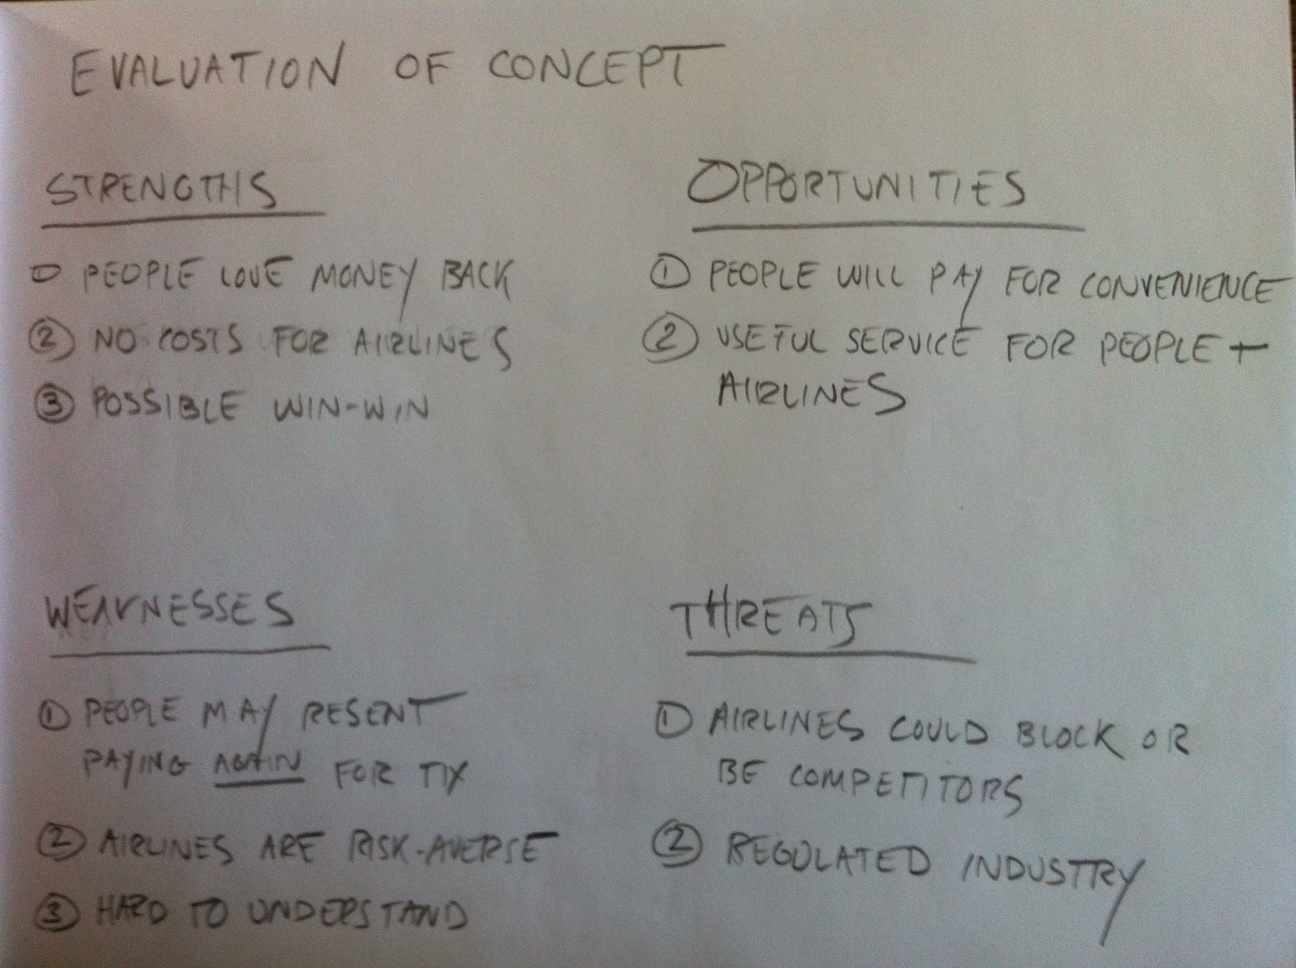 EVALUATION OF CONCEPT
STRENGTHS
① PEOPLE LOVE MONEY BACK
② NO COSTS FOR AIRLINES
③ POSSIBLE WIN-WIN
OPPORTUNITIES
① PEOPLE WILL PAY FOR CONVENIENCE
② USEFUL SERVICE FOR PEOPLE +
AIRLINES
WEAKNESSES
① PEOPLE MAY RESENT
PAYING AGAIN FOR TIX
② AIRLINES ARE RISK-AVERSE
③ HARD TO UNDERSTAND
THREATS
① AIRLINES COULD BLOCK OR
BE COMPETITORS
② REGULATED INDUSTRY